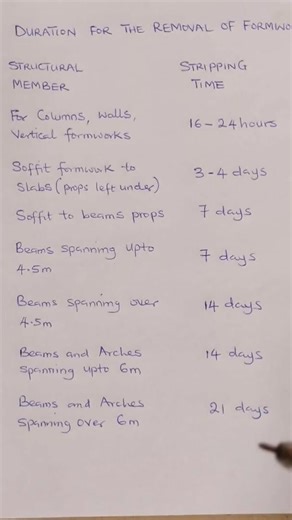 DURATION FOR THE REMOVAL OF FORMWO
STRUCTURAL MEMBER STRIPPING TIME
For Columns, Walls, Vertical formworks 16-24 hours
Soffit formwork to Slabs (props left under) 3-4 days
Soffit to beams props 7 days
Beams spanning upto 4.5m 7 days
Beams spanning over 4.5m 14 days
Beams and Arches spanning upto 6m 14 days
Beams and Arches spanning over 6m 21 days